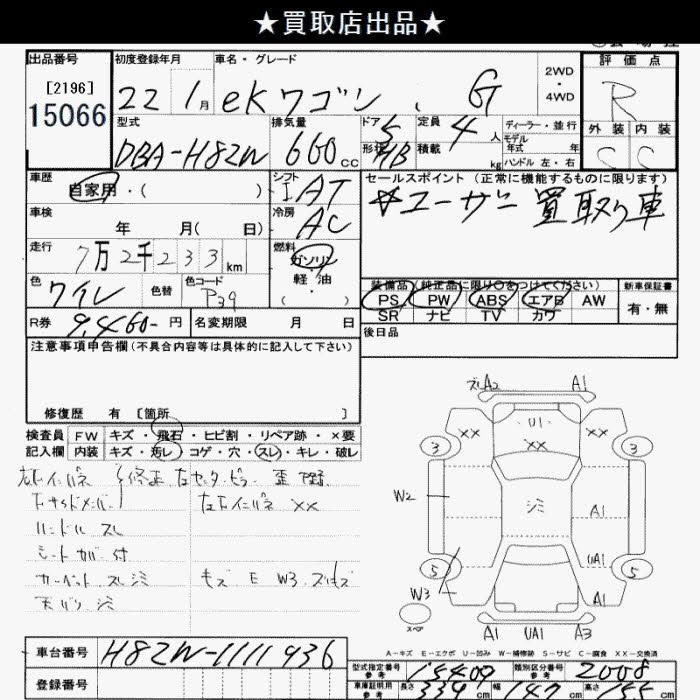 ★買取店出品★
出品番号
[2196]
15066
初度登録年月
22 1月
車名・グレード
eKワゴン、G
2WD
・
4WD
評価点
R
外装 内装
C C
型式
DBA-H82W
排気量
660cc
ドア 5
形状 HB
定員 4人
積載 kg
ディーラー・並行
モデル
年式 年
ハンドル 左・右
車歴
自家用・( )
シフト
I AT
冷房
AC
セールスポイント (正常に機能するものに限ります)
☆ユーザー買取り車
車検
年 月( 日)
走行
7万2千233km
燃料
ガソリン
軽油
( ・ )
色
ワイレ
色替
色コード
P39
装備品 (純正品に限り〇をつけてください)
PS PW ABS エアB AW
SR ナビ TV カワ
新車保証書
有・無
R券 9,460-円
名変期限 月 日
後日品
注意事項申告欄(不具合内容等は具体的に記入して下さい)
修復歴 有 [箇所 ]
検査員 FW キズ・飛石・ヒビ割・リペア跡・×要
記入欄 内装 キズ・汚レ・コゲ・穴・スレ・キレ・破レ
ハンドル スレ
シートカバー付
カーペット スレ シミ
天バリ シミ
キズ E W3
A2 A1
U1
XX XX XX
3 3
W2
シミ
A1
UA1
5 5
W3
スペア
A1 UA1 A3
A-キズ E-エクボ U-凹み W-補修跡 S-サビ C-腐食 XX-交換済
車台番号 H82W-1111936
登録番号
型式指定番号
参考
15409
類別区分番号
参考
2008
車庫証明用
参考
長さ 339cm 幅 147cm 高さ 155cm